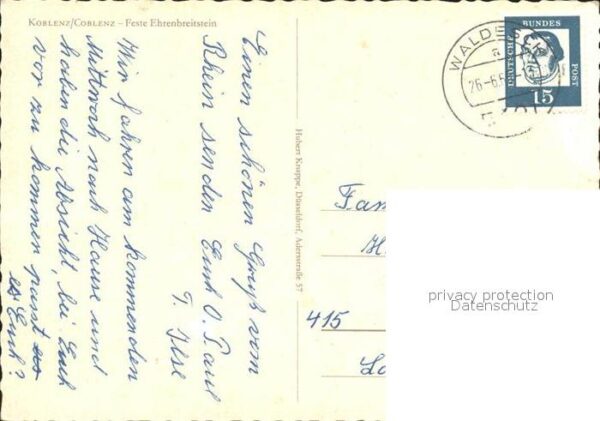 KOBLENZ/COBLENZ – Feste Ehrenbreitstein
Einen schönen Gruß vom
Rhein senden
Euch O. Paul
T. Ilse
Wir fahren am kommenden
Mittwoch nach Hause und
haben die Absicht, bei Euch
vor zu kommen passt es
es Euch?
Hubert Knappe, Düsseldorf, Adersstraße 57
WALDESCH
26-6.6
DEUTSCHE BUNDES POST
15
Fam
H
415
privacy protection
Datenschutz